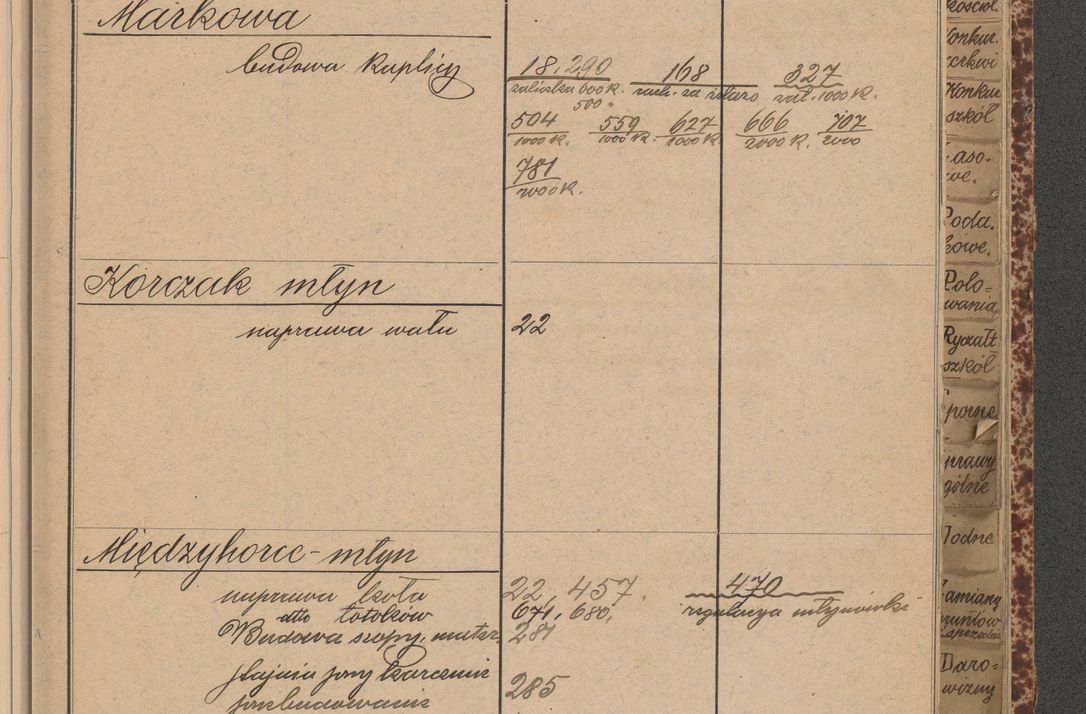 Markowa
budowa kaplicy
18, 290 168 327
zaliczka 600 K. rach. za żelazo zal. 1000 K.
500 "
504 559 627 666 707
1000 K. 1000 K. 1000 K. 2000 K. 2000
781
2000 K.
Korczak młyn
naprawa wału 22
Międzyhorce - młyn
naprawa koła 22, 457. 470
dtto totoków 671, 680, regulacya młynówki
Budowa szopy, 281
stajnia przy karczmie
przebudowanie 285
kościoł.
Konkur.
cerkwi
Konkur
szkół
Laso-
we.
Poda.
kowe.
Polo-
wania
Ryczałt
szkół
Sporne
Sprawy
ogólne
Wodne
Zamiany
gruntów
Zaprzedaż
Daro-
wizny